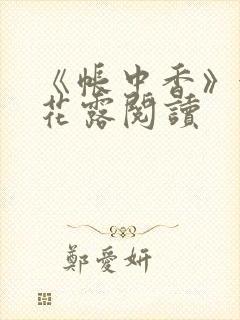 《帳中香》
花露閱讀
鄭愛妍